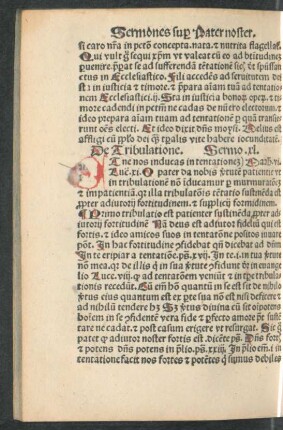 Sermones sup Pater noster.
si caro nr̃a in petõ concepta. nata. ⁊ nutrita flagellet̃
Qui vult g̃ sequi xp̄m vt valeat cũ eo ad btitudinez
puenire. p̃parat se ad sufferendã tẽtatiõnẽ sic̃. tẽ spũssan
ctus in Ecclesiastico. Fili accedẽs ad seruitutem dei
sta in iusticia ⁊ timore. ⁊ p̃para aĩam tuã ad tentatio
nem Ecclesiastici.ij. Sta in iusticia bonoꝝ opeꝝ. ⁊ in
timore cadendi in petm̃ ne cadas de
ideo prepara aĩam tuam ad tentationẽ p quã transie
runt oẽs electi. Et ideo dixit dñs moysi. Melius est
affligi cũ pplo dei q̃ tpalis vite habere iocunditatẽ.
De Tribulatione. Sermo .xl.
Et ne nos inducas in tentationez Math.vi.
Luc̃.xi. O pater da nobis v̓tutẽ patientie vt
in tribulatione nõ iducamur ꝑ murmur
⁊ impatientiã. qꝛ illa tribulatõis
ppter adiutorij fortitudinem. ⁊ supplicij formidinem.
Primo tribulatio est patienter sustinẽda ꝓpter ad
iutorij fortitudinẽ Nã deus est adiutor fidelis qui est
fortis. ⁊ ideo amicos suos in tentatõne positos iuuare
põt. In hac fortitudine ꝯfidebat qñ dicebat ad dñm
In te eripiar a tentatiõe.ps̃.xvij. In te.i. in tua v̓tute
nõ mea. qꝛ de illis q̃ in sua v̓tute ꝯfidunt
Luc̃.viij. ad tentatõem veniũt ⁊ in tp̃e tribula
tionis recedũt. Cũ em̃ hõ quantũ in se est sit de nihilo
v̓tus eius quantum est ex pte sua nõ est nisi deficere ⁊
ad nihilũ tendere Sʒ v̓tus diuina cũ sit oĩpotens
hoĩem in se ꝯfidentẽ vera fide ⁊ ꝑfecto amore p̃t susten
tare ne cadat. ⁊ post casum erigere vt resurgat. Sic g̃
patet ꝙ adiutor noster fortis est. dicẽte ps̃. Dñs fort̃
⁊ potens dñs potens in p̃lio.ps̃.xxiij. In p̃lio em̃.i. in
tentatione facit nos fortes ⁊ potẽtes q̃ sumus debiles